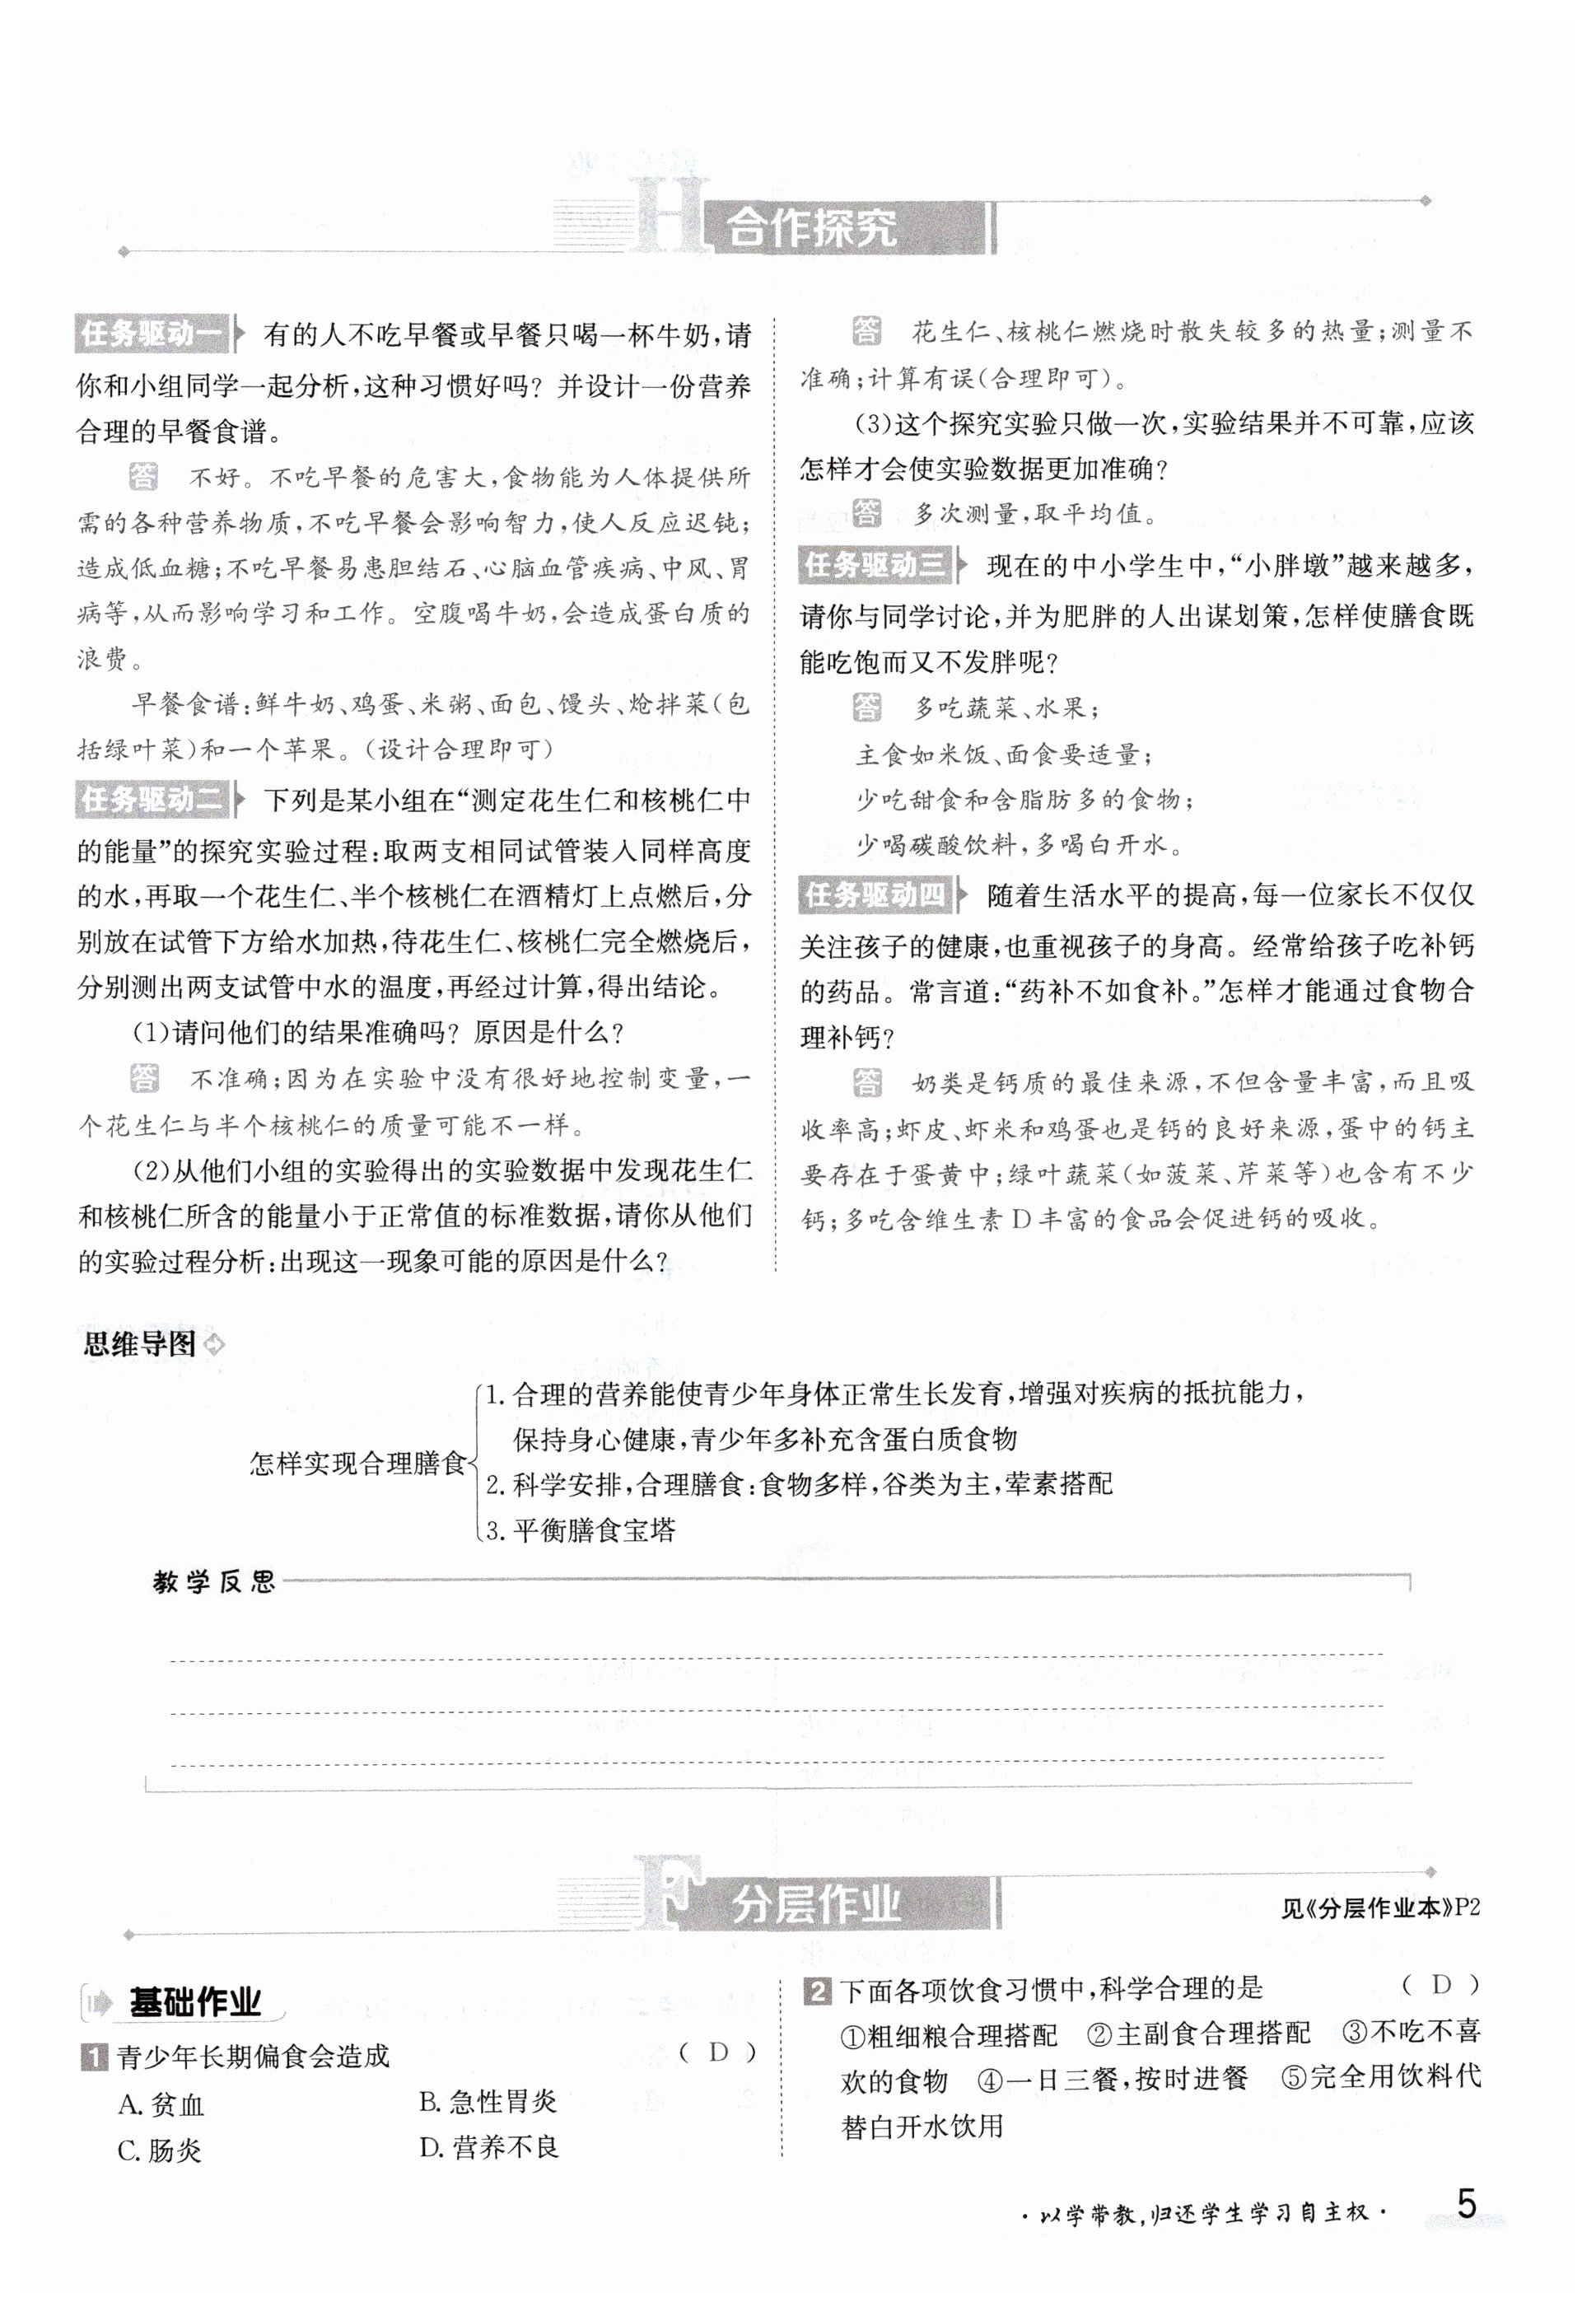 合作探究
任务驱动一 有的人不吃早餐或早餐只喝一杯牛奶,请
你和小组同学一起分析,这种习惯好吗？并设计一份营养
合理的早餐食谱。
答 不好。不吃早餐的危害大,食物能为人体提供所
需的各种营养物质,不吃早餐会影响智力,使人反应迟钝;
造成低血糖;不吃早餐易患胆结石、心脑血管疾病、中风、胃
病等,从而影响学习和工作。空腹喝牛奶,会造成蛋白质的
浪费。
早餐食谱:鲜牛奶、鸡蛋、米粥、面包、馒头、炝拌菜(包
括绿叶菜)和一个苹果。(设计合理即可)
任务驱动二 下列是某小组在“测定花生仁和核桃仁中
的能量”的探究实验过程:取两支相同试管装入同样高度
的水,再取一个花生仁、半个核桃仁在酒精灯上点燃后,分
别放在试管下方给水加热,待花生仁、核桃仁完全燃烧后,
分别测出两支试管中水的温度,再经过计算,得出结论。
(1)请问他们的结果准确吗？原因是什么？
答 不准确;因为在实验中没有很好地控制变量,一
个花生仁与半个核桃仁的质量可能不一样。
(2)从他们小组的实验得出的实验数据中发现花生仁
和核桃仁所含的能量小于正常值的标准数据,请你从他们
的实验过程分析:出现这一现象可能的原因是什么？
答 花生仁、核桃仁燃烧时散失较多的热量;测量不
准确;计算有误(合理即可)。
(3)这个探究实验只做一次,实验结果并不可靠,应该
怎样才会使实验数据更加准确？
答 多次测量,取平均值。
任务驱动三 现在的中小学生中,“小胖墩”越来越多,
请你与同学讨论,并为肥胖的人出谋划策,怎样使膳食既
能吃饱而又不发胖呢？
答 多吃蔬菜、水果;
主食如米饭、面食要适量;
少吃甜食和含脂肪多的食物;
少喝碳酸饮料,多喝白开水。
任务驱动四 随着生活水平的提高,每一位家长不仅仅
关注孩子的健康,也重视孩子的身高。经常给孩子吃补钙
的药品。常言道:“药补不如食补。”怎样才能通过食物合
理补钙？
答 奶类是钙质的最佳来源,不但含量丰富,而且吸
收率高;虾皮、虾米和鸡蛋也是钙的良好来源,蛋中的钙主
要存在于蛋黄中;绿叶蔬菜(如菠菜、芹菜等)也含有不少
钙;多吃含维生素D丰富的食品会促进钙的吸收。
思维导图
1. 合理的营养能使青少年身体正常生长发育,增强对疾病的抵抗能力,
保持身心健康,青少年多补充含蛋白质食物
怎样实现合理膳食
2. 科学安排,合理膳食:食物多样,谷类为主,荤素搭配
3. 平衡膳食宝塔
教学反思
分层作业
见《分层作业本》P2
基础作业
1 青少年长期偏食会造成 ( D )
A. 贫血 B. 急性胃炎
C. 肠炎 D. 营养不良
2 下面各项饮食习惯中,科学合理的是 ( D )
①粗细粮合理搭配 ②主副食合理搭配 ③不吃不喜
欢的食物 ④一日三餐,按时进餐 ⑤完全用饮料代
替白开水饮用
·以学带教,归还学生学习自主权· 5